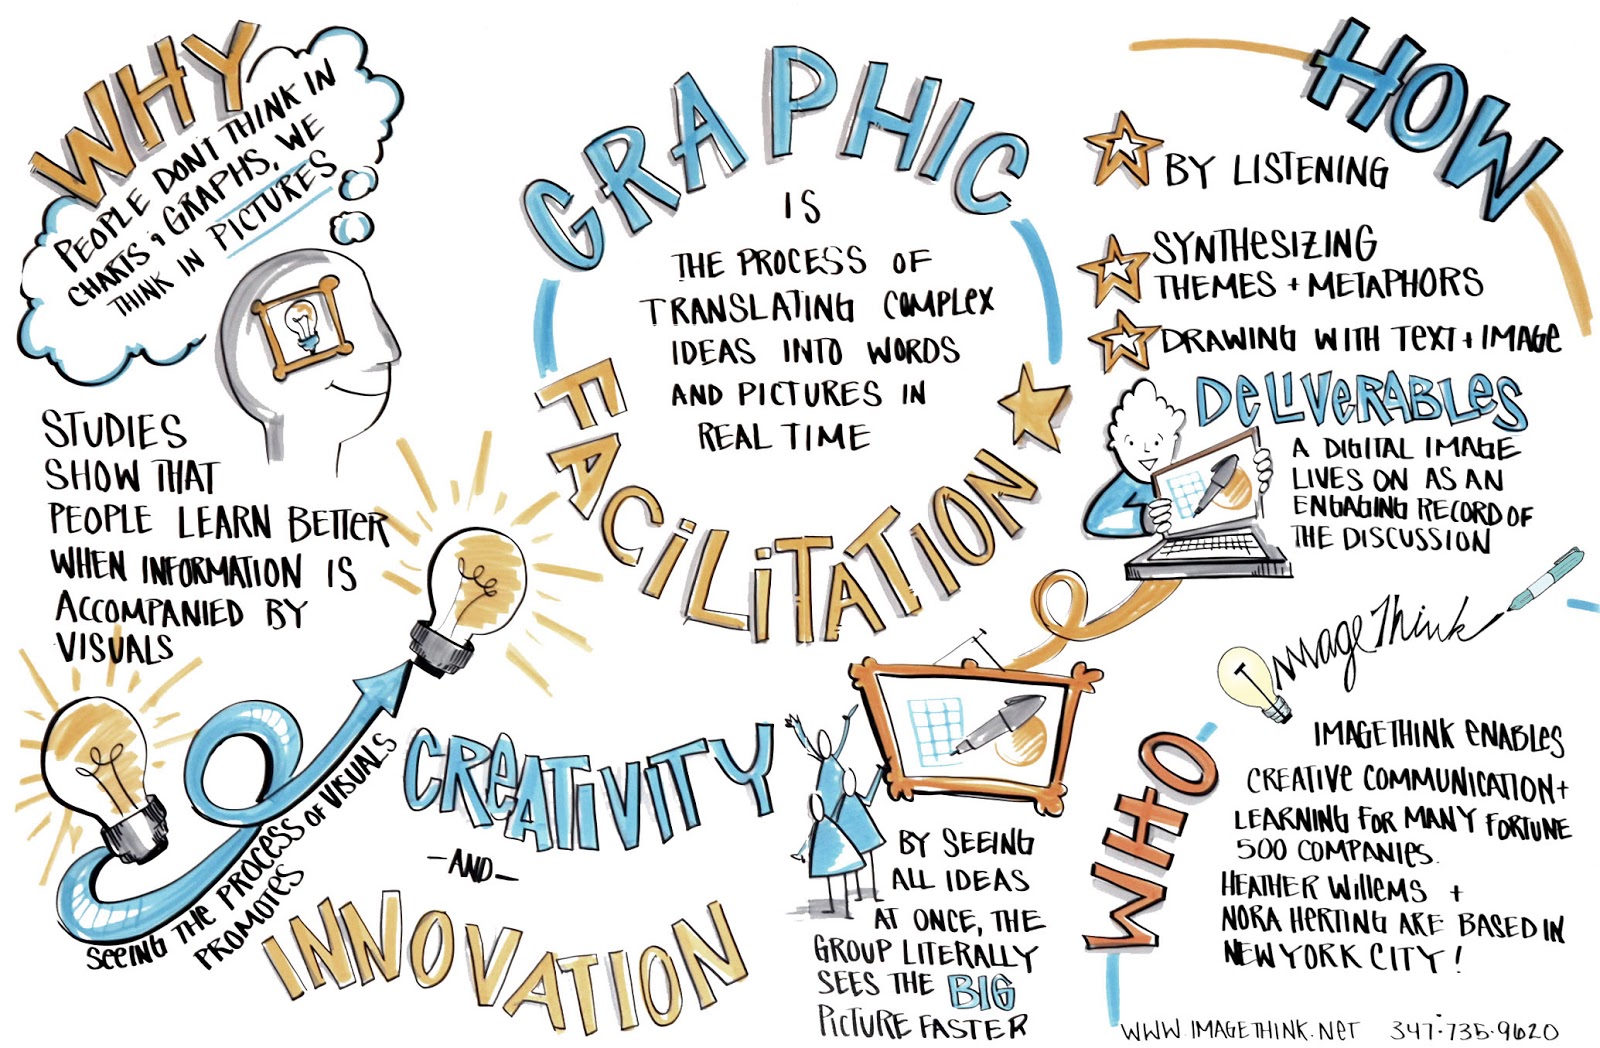 WHY
PEOPLE DON'T THINK IN
CHARTS + GRAPHS, WE
THINK IN PICTURES
STUDIES
SHOW THAT
PEOPLE LEARN BETTER
WHEN INFORMATION IS
ACCOMPANIED BY
VISUALS
SEEING THE PROCESS OF VISUALS
PROMOTES
CREATIVITY
-AND-
INNOVATION
GRAPHIC
IS
THE PROCESS OF
TRANSLATING COMPLEX
IDEAS INTO WORDS
AND PICTURES IN
REAL TIME
FACILITATION
BY SEEING
ALL IDEAS
AT ONCE, THE
GROUP LITERALLY
SEES THE BIG
PICTURE FASTER
HOW
BY LISTENING
SYNTHESIZING
THEMES + METAPHORS
DRAWING WITH TEXT + IMAGE
DELIVERABLES
A DIGITAL IMAGE
LIVES ON AS AN
ENGAGING RECORD OF
THE DISCUSSION
ImageThink
WHO
IMAGETHINK ENABLES
CREATIVE COMMUNICATION +
LEARNING FOR MANY FORTUNE
500 COMPANIES.
HEATHER WILLEMS +
NORA HERTING ARE BASED IN
NEW YORK CITY!
WWW.IMAGETHINK.NET 347·735·9620